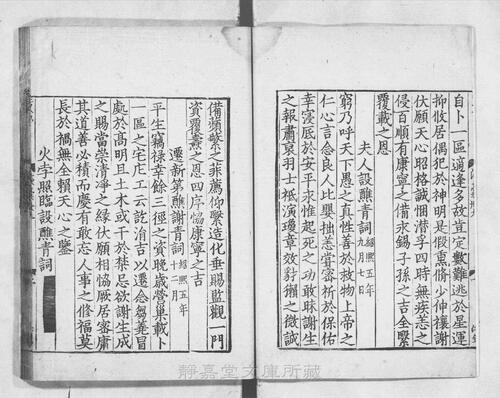 自卜一區適逢多故豈定數難逃於星運
抑攸居偶犯於神明是假熏脩少伸禳謝
伏願天心昭格誠悃潛孚四時無疾恙之
侵百順有康寧之備永錫子孫之吉全繫
覆載之恩
夫人設醮青詞紹熙五年九月七日
窮乃呼天下愚之真性善於救物上帝之
仁心言念良人比嬰拙恙嘗密祈於保佑
幸寖底於安平永惟起死之功敢昧謝生
之報肅哀羽士祗演瓊章效豺獺之微誠
備蘋蘩之菲薦仰繫造化垂賜監觀一門
資覆燾之恩四序恊康寧之吉
遷新第醮謝青詞紹熙五年十二月
平生竊祿幸餘三徑之資晚歲營巢載卜
一區之宅庀工云訖涓吉以遷念芻蕘冒
處於高明且土木或干於禁忌欲謝生成
之賜當崇清淨之緣伏願相恊厥居審庸
其道善必積而慶有敢忘人事之修福莫
長於禍無全賴天心之鑒
火孛照臨設醮青詞
靜嘉堂文庫所藏